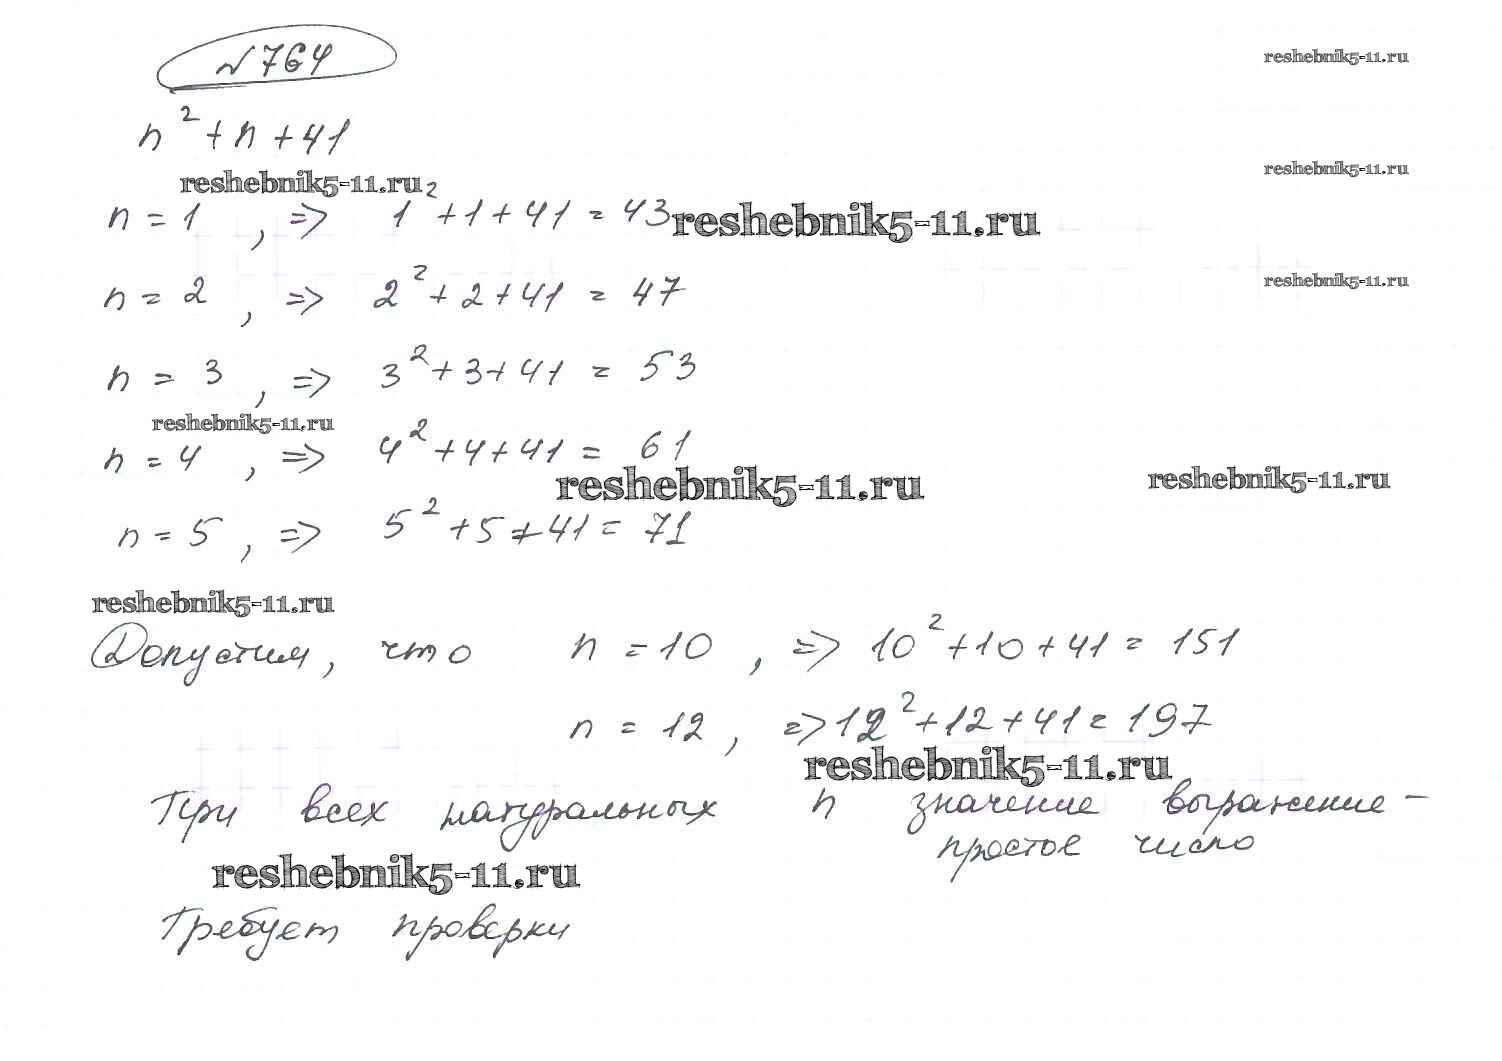 №764
reshebnik5-11.ru
n² + n + 41
reshebnik5-11.ru
reshebnik5-11.ru
n = 1 , => 1² + 1 + 41 = 43
reshebnik5-11.ru
n = 2 , => 2² + 2 + 41 = 47
reshebnik5-11.ru
n = 3 , => 3² + 3 + 41 = 53
reshebnik5-11.ru
n = 4 , => 4² + 4 + 41 = 61
reshebnik5-11.ru
reshebnik5-11.ru
n = 5 , => 5² + 5 + 41 = 71
reshebnik5-11.ru
Допустим, что n = 10 , => 10² + 10 + 41 = 151
n = 12 , => 12² + 12 + 41 = 197
reshebnik5-11.ru
При всех натуральных n значение выражение –
простое число
reshebnik5-11.ru
Требует проверки